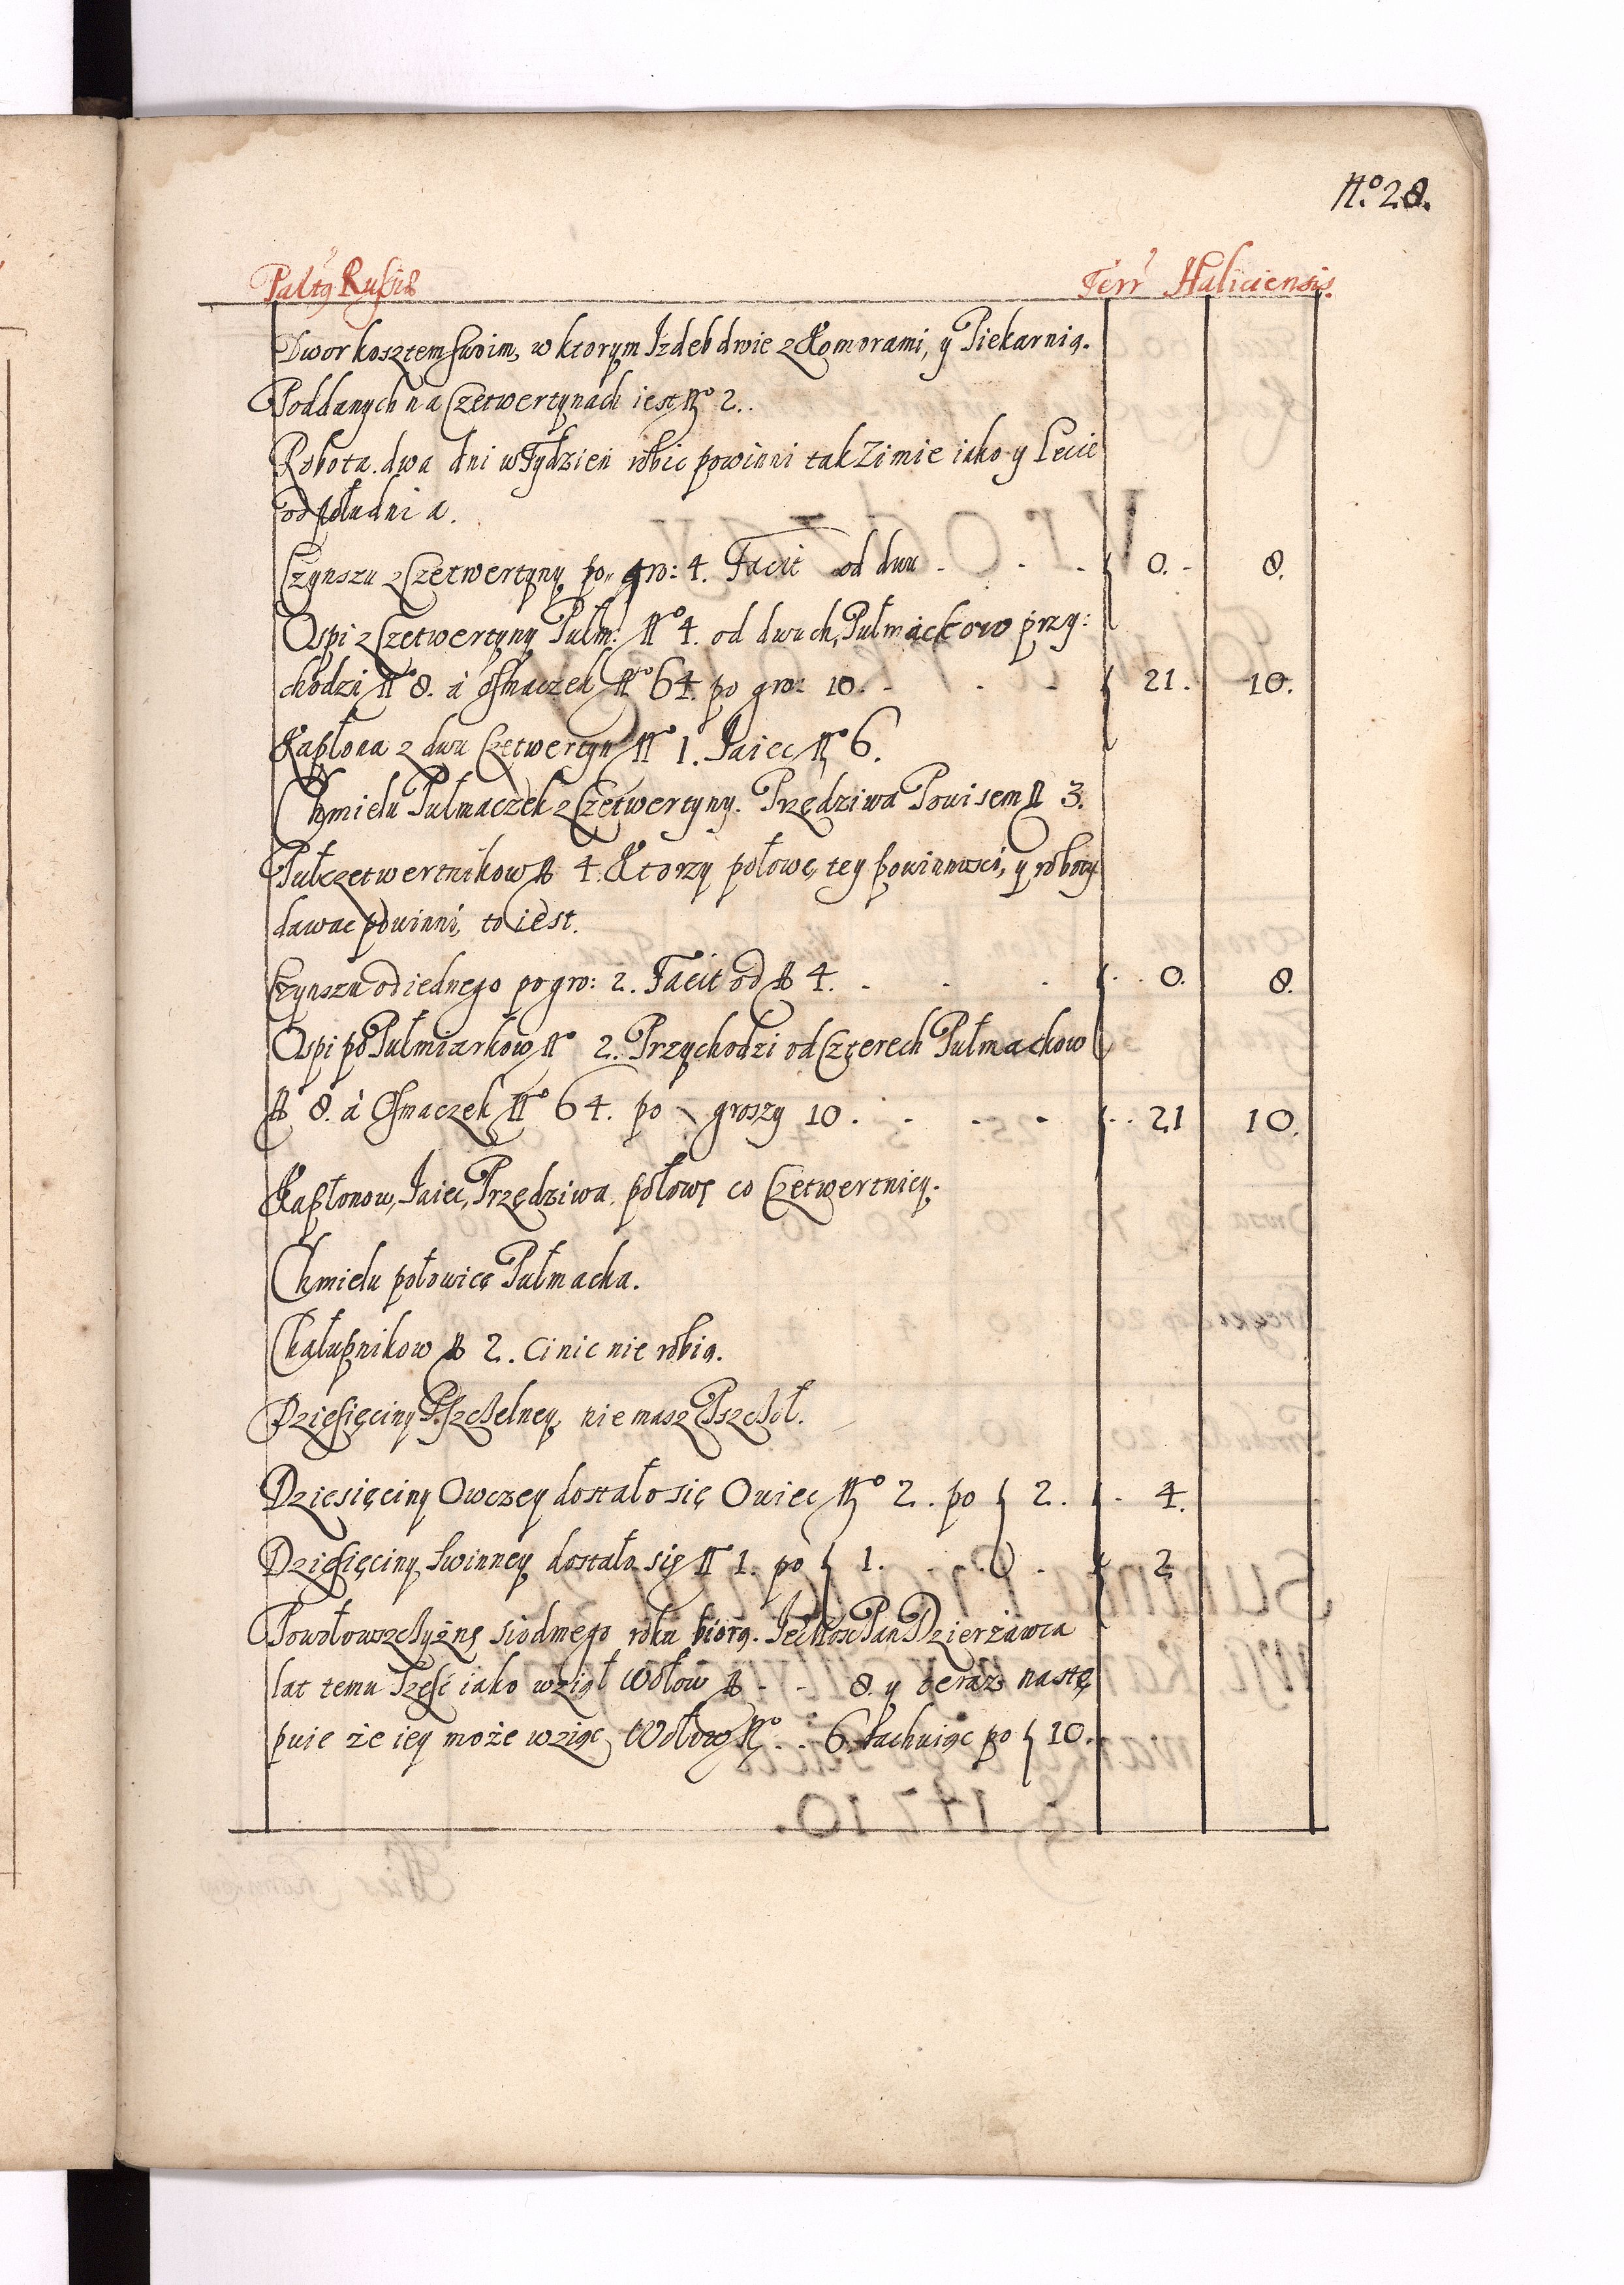 No. 28.
Palts Russiæ Terr Haliciensis.
Dwor kosztem swoim, w ktorym Izdeb dwie z Komorami, y Piekarnią.
Poddanych na Czetwertynach iest No 2.
Robota. dwa dni w Tydzień robic powinni tak Zimie iako y Lecie
od południa.
Czynszu z Czetwertyny po gro: 4. Facit od dwu - - - 0. - 8.
Ospi z Czetwertyny Pułm: No 4. od dwuch, Pułmackow przy:
chodzi No 8. à osmaczek No 64. po gro: 10. - - - 21. 10.
Kapłona z dwu Czetwertyn No 1. Jaiec No 6.
Chmielu Pułmaczek z Czetwertyny. Przędziwa Powisem No 3.
Pułczetwertnikow No 4. Ktorzy połowę tey powinności, y roboty
dawac powinni, to iest.
Czynszu od iednego po gro: 2. Facit od No 4. - - - 0. 8.
Ospi po Pułmiarkow No 2. Przychodzi od Czterech Pułmackow
No 8. à Osmaczek No 64. po groszy 10. - - - 21 10.
Kapłonow, Jaiec, Przędziwa, połowę co Czetwertnicy.
Chmielu połowicę Pułmacka.
Chałupnikow No 2. Ci nic nie robią.
Dziesięciny Pszczelney, nie masz Pszczoł.
Dziesięciny Owczey dostało się Owiec No 2. po 2. - 4.
Dziesięciny Swinney dostało się No 1. po 1. - 2
Powołowszczyznę siodmego roku biorą. Jegmosc Pan Dzierzawca
lat temu Szesc iako wziął Wołow No - - 8. y teraz nastę
puie że iey może wziąc Wołow No - - 6. Rachuiąc po 10.